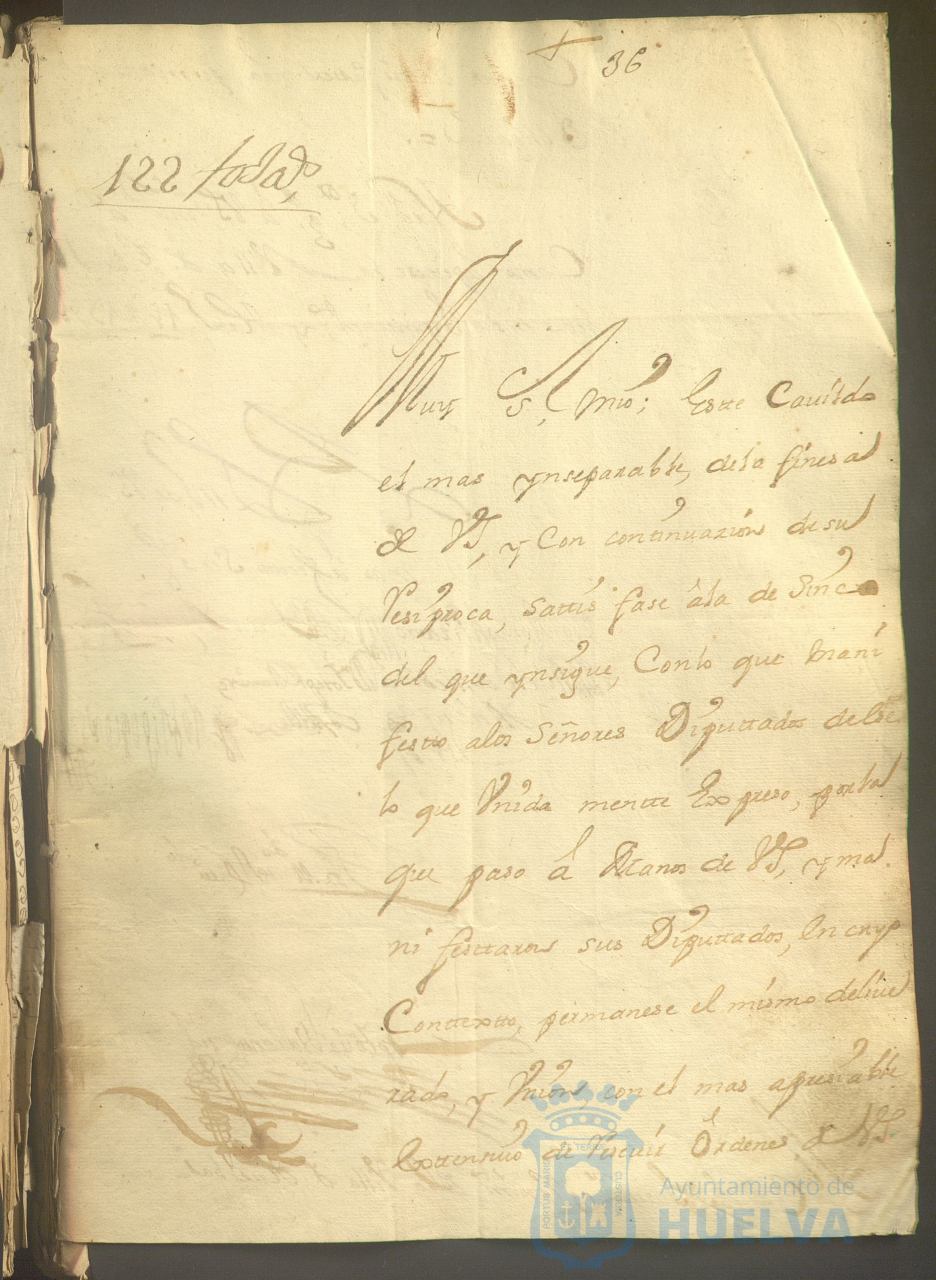 36
122
Muy S.r mio; Este Cavildo
el mas ynseparable, dela finesa
de VS, y Con continuazion de su
Resiproca, sattis fase àla de
del que ynsigue, Conlo que mani
festto alos Señores Diputtados
lo que Vnida mentte Expreso, porla
que paso â Manos de VS, y ma
ni festtaron sus Diputtados, En cuyo
Conttextto, permanese el mismo delive
rado, y Vnion, con el mas apresiable
Exttensivo de Ordenes de VS.
PORTUS MARIS
ET TERRE
CUSTODIA
Ayuntamiento de
HUELVA